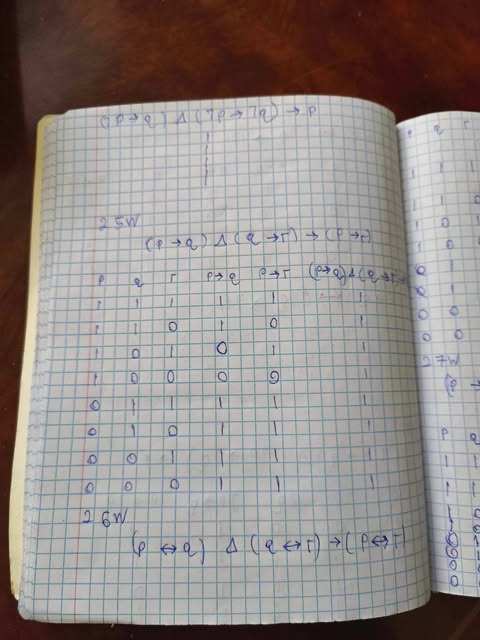 (¬p→q) Δ (¬p→¬q) → p
25W
(p→q) Δ (q→r) → (p→r)
p q r p→q p→r (p→q) Δ (q→r
1 1 1 1 1 1
1 1 0 1 0 1
1 0 1 0 1 1
1 0 0 0 0 1
0 1 1 1 1 1
0 1 0 1 1 1
0 0 1 1 1 1
0 0 0 1 1 1
26W
(p ↔ q) Δ (q ↔ r) → (p ↔ r)
q r
1 1
1 1
1 0
1 0
0 1
0 1
0 0
0 0
27W
(p
p q
1 1
1 1